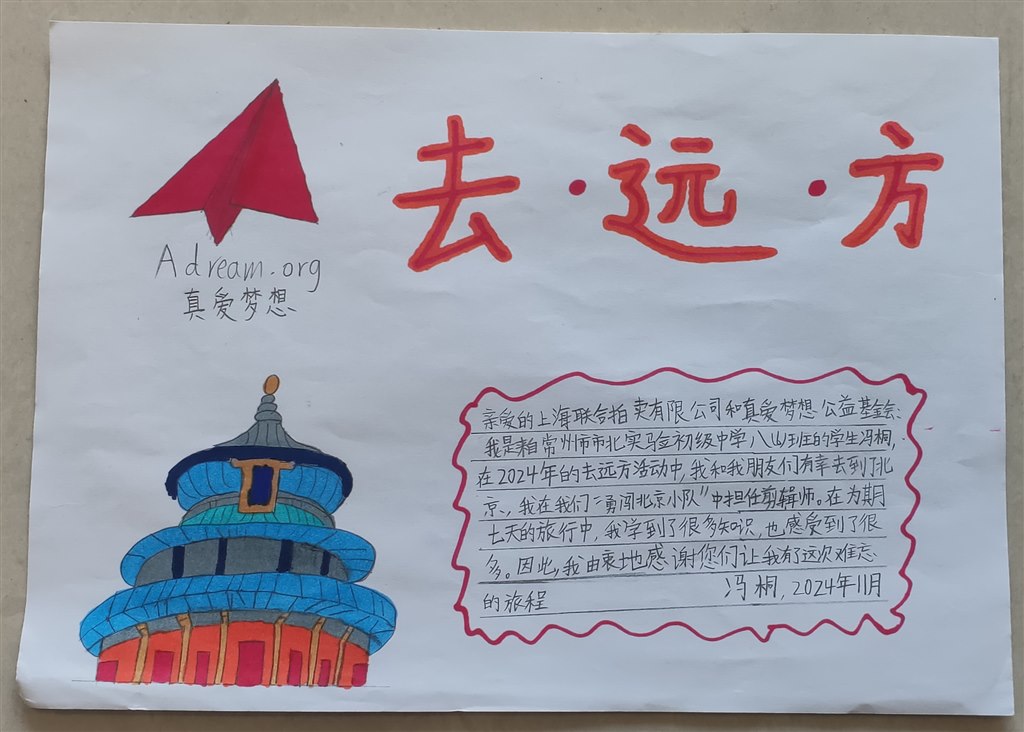 去·远·方
Adream.org
真爱梦想
亲爱的上海联合拍卖有限公司和真爱梦想公益基金会:
我是来自常州市市北实验初级中学八(4)班的学生冯桐,
在2024年的去远方活动中,我和我朋友们有幸去到了北
京、我在我们"勇闯北京小队"中担任剪辑师。在为期
七天的旅行中,我学到了很多知识,也感受到了很
多。因此,我由衷地感谢您们让我有了这次难忘
的旅程
冯桐,2024年11月